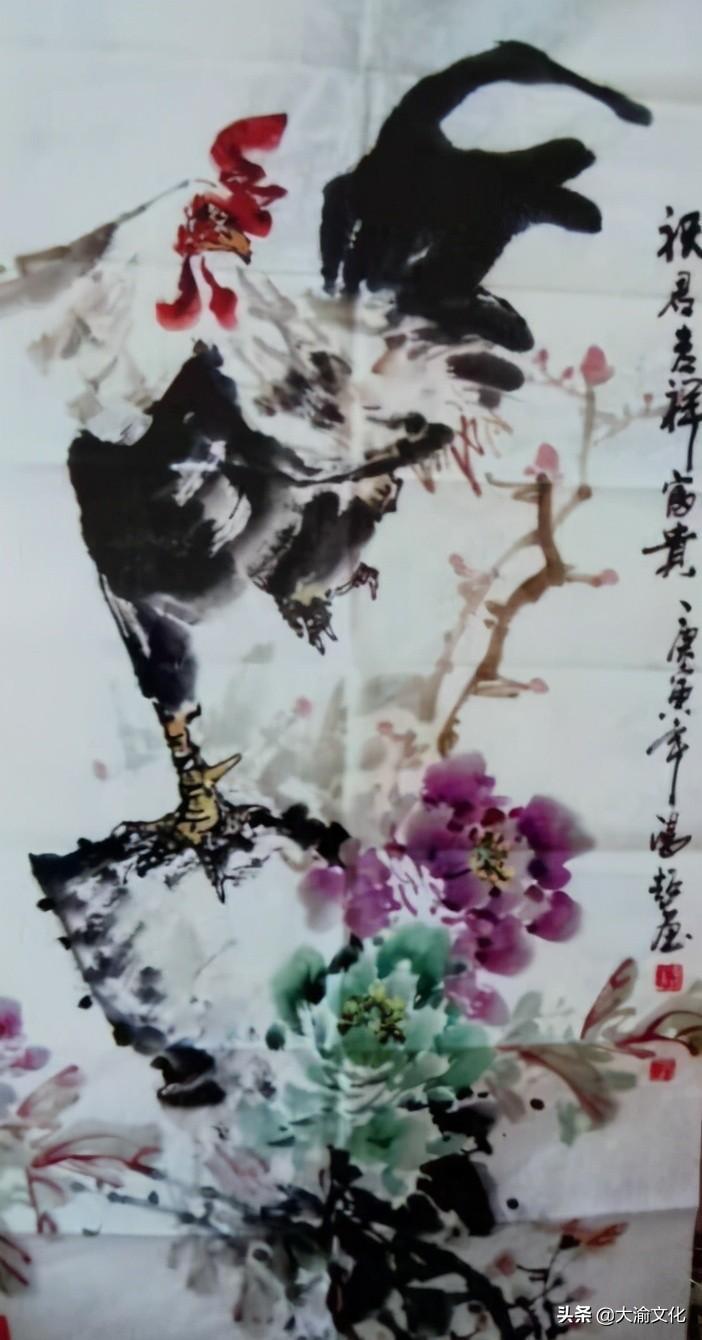 祝君吉祥富贵、庚寅年湯哲画
头条 @大渝文化